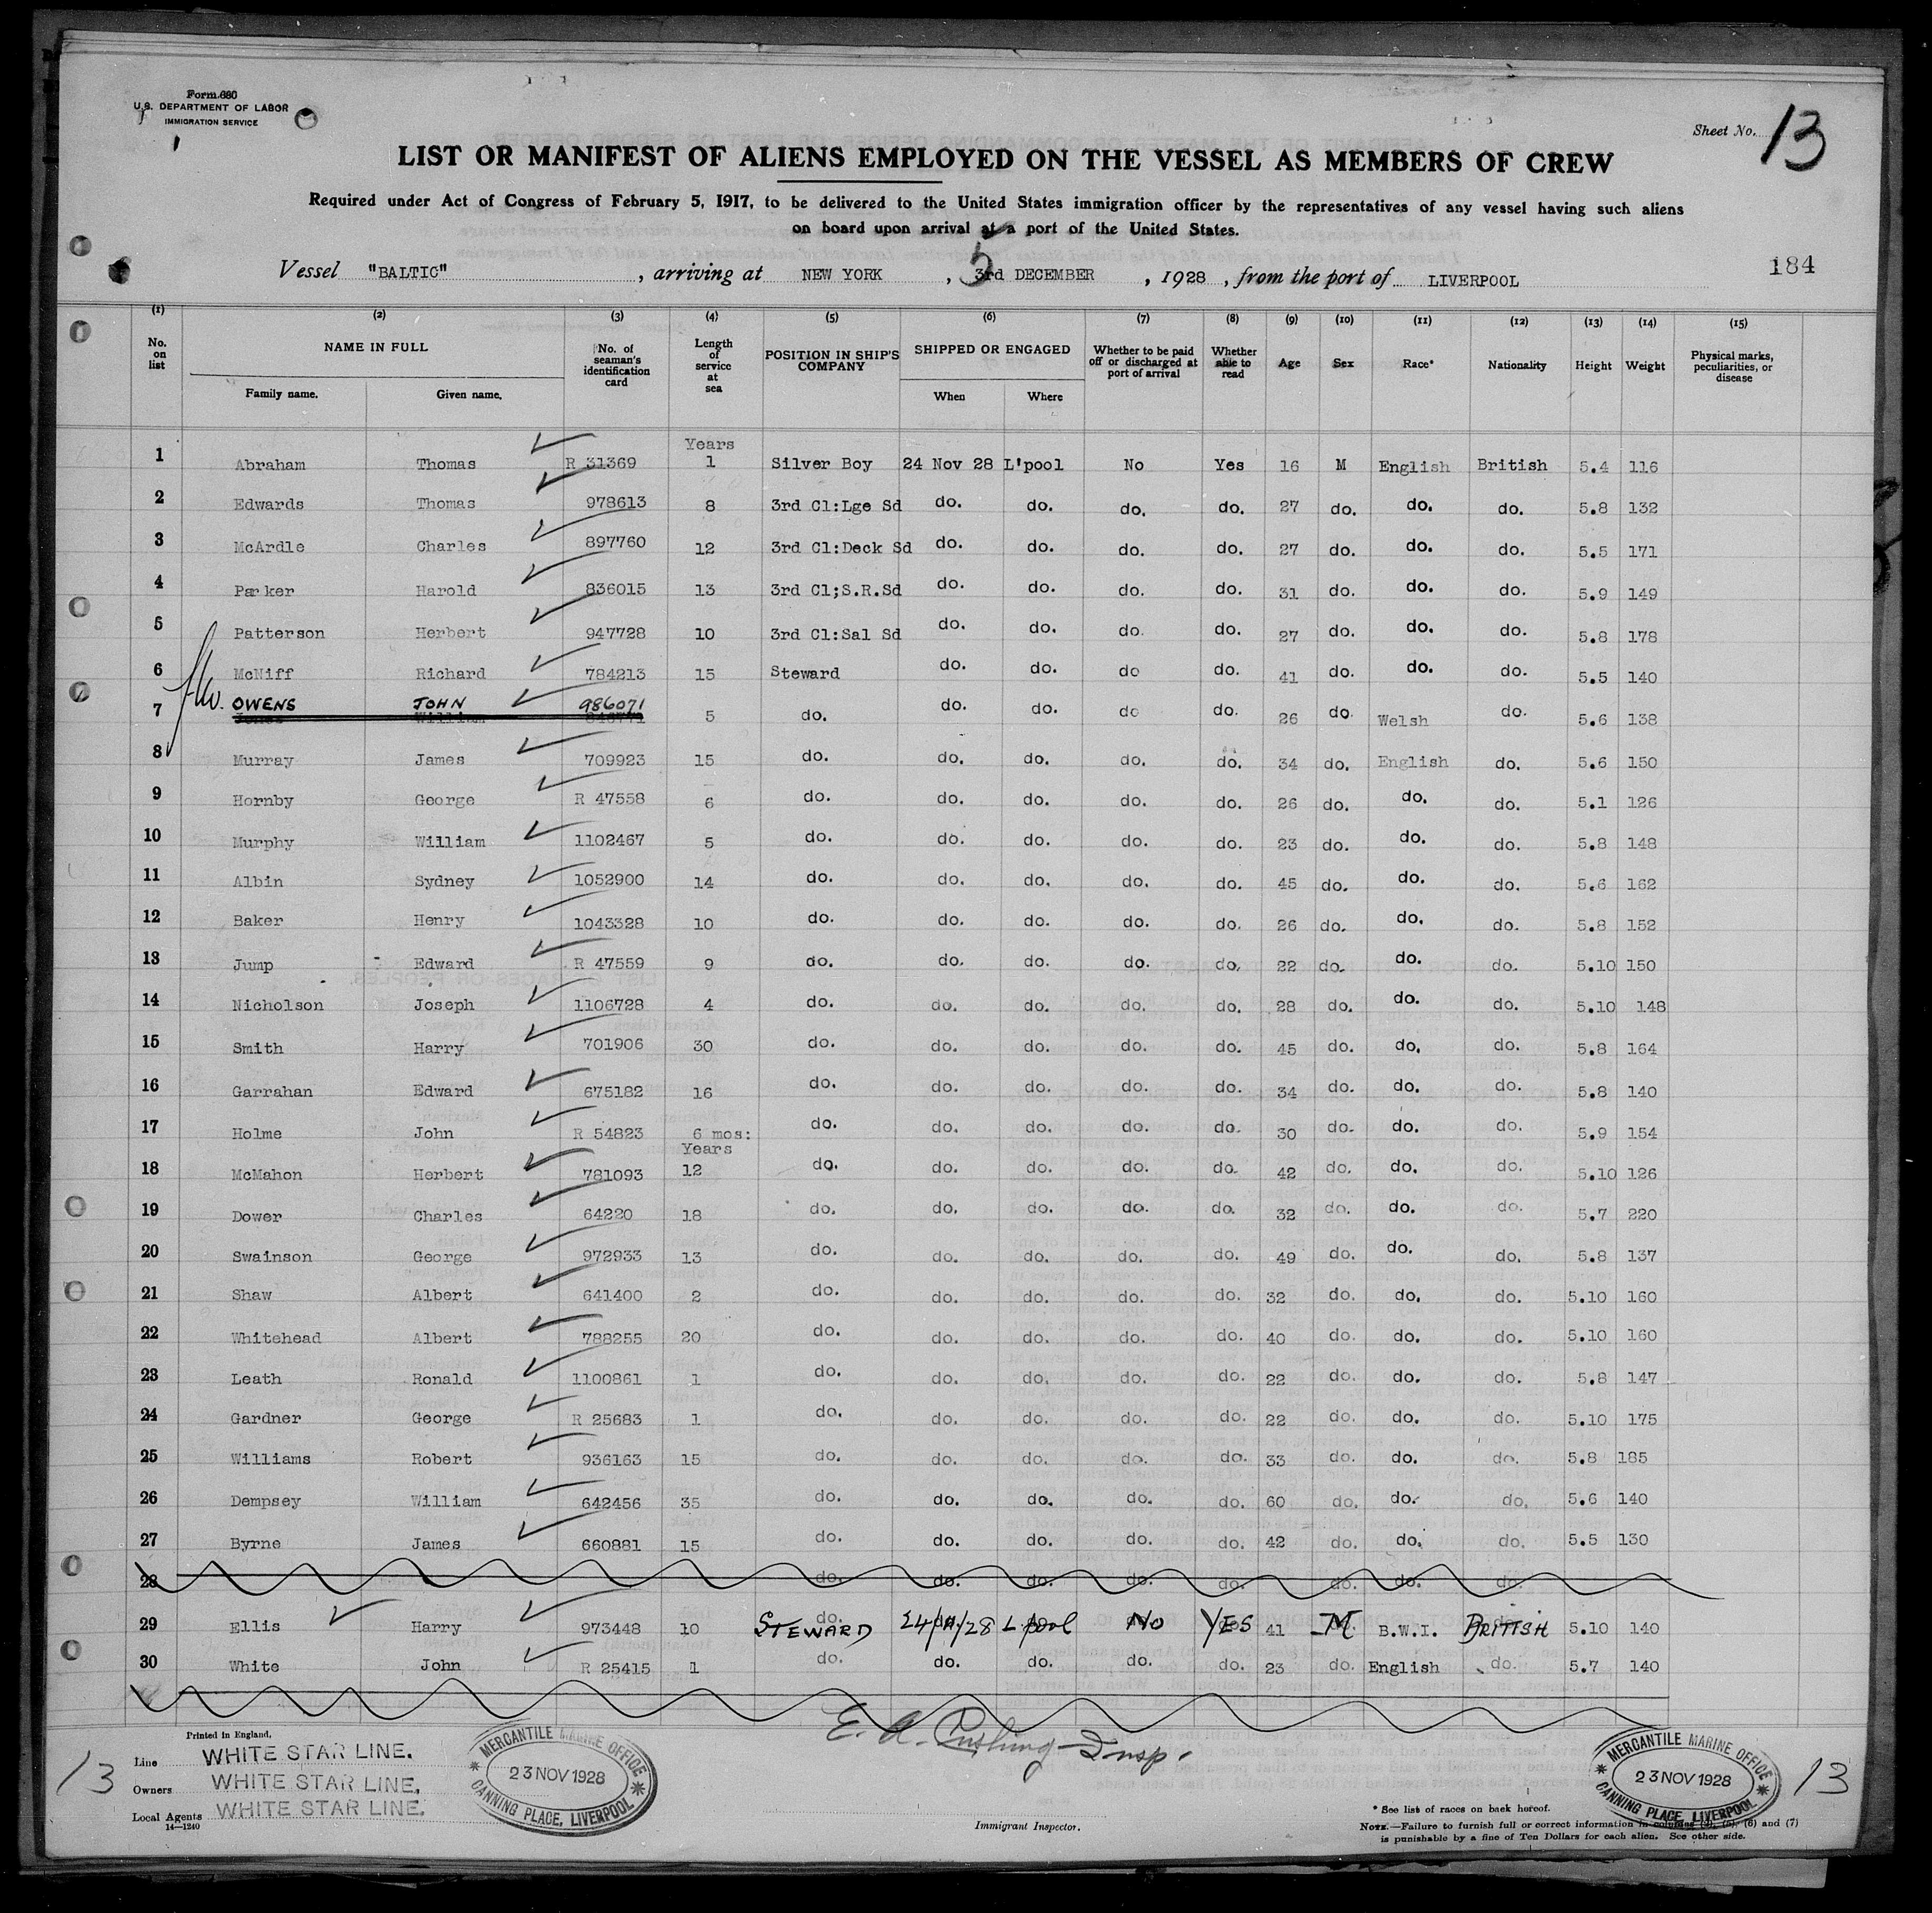 Form 680
U.S. DEPARTMENT OF LABOR
IMMIGRATION SERVICE
Sheet No. 13
LIST OR MANIFEST OF ALIENS EMPLOYED ON THE VESSEL AS MEMBERS OF CREW
Required under Act of Congress of February 5, 1917, to be delivered to the United States immigration officer by the representatives of any vessel having such aliens
on board upon arrival at a port of the United States.
Vessel "BALTIC", arriving at NEW YORK, 5 3rd DECEMBER, 1928, from the port of LIVERPOOL
184
(1) (2) (3) (4) (5) (6) (7) (8) (9) (10) (11) (12) (13) (14) (15)
No. on list NAME IN FULL Family name. Given name. No. of seaman's identification card Length of service at sea POSITION IN SHIP'S COMPANY SHIPPED OR ENGAGED When Where Whether to be paid off or discharged at port of arrival Whether able to read Age Sex Race* Nationality Height Weight Physical marks, peculiarities, or disease
Years
1 Abraham Thomas R 31369 1 Silver Boy 24 Nov 28 L'pool No Yes 16 M English British 5.4 116
2 Edwards Thomas 978613 8 3rd Cl:Lge Sd do. do. do. do. 27 do. do. do. 5.8 132
3 McArdle Charles 897760 12 3rd Cl:Deck Sd do. do. do. do. 27 do. do. do. 5.5 171
4 Parker Harold 836015 13 3rd Cl;S.R.Sd do. do. do. do. 31 do. do. do. 5.9 149
5 Patterson Herbert 947728 10 3rd Cl:Sal Sd do. do. do. do. 27 do. do. do. 5.8 178
6 McNiff Richard 784213 15 Steward do. do. do do. 41 do. do. do. 5.5 140
7 OWENS JOHN 986071 5 do. do. do. do do. 26 do. Welsh do. 5.6 138
8 Murray James 709923 15 do. do. do. do. do. 34 do. English do. 5.6 150
9 Hornby George R 47558 6 do. do. do. do. do. 26 do. do. do. 5.1 126
10 Murphy William 1102467 5 do. do. do. do. do. 23 do. do. do. 5.8 148
11 Albin Sydney 1052900 14 do. do. do. do. do. 45 do. do. do. 5.6 162
12 Baker Henry 1043328 10 do. do. do. do. do. 26 do. do. do. 5.8 152
13 Jump Edward R 47559 9 do. do. do. do. do. 22 do. do. do. 5.10 150
14 Nicholson Joseph 1106728 4 do. do. do. do. do. 28 do. do. do. 5.10 148
15 Smith Harry 701906 30 do. do. do. do. do. 45 do. do. do. 5.8 164
16 Garrahan Edward 675182 16 do. do. do. do. do. 34 do. do. do. 5.8 140
17 Holme John R 54823 6 mos: do. do. do. do. do. 30 do. do. do. 5.9 154
Years
18 McMahon Herbert 781093 12 do. do. do. do. do. 42 do. do. do. 5.10 126
19 Dower Charles 64220 18 do. do. do. do. do. 32 do. do. do. 5.7 220
20 Swainson George 972933 13 do. do. do. do. do. 49 do. do. do. 5.8 137
21 Shaw Albert 641400 2 do. do. do. do. do. 32 do. do. do. 5.10 160
22 Whitehead Albert 788255 20 do. do. do. do. do. 40 do. do. do. 5.10 160
23 Leath Ronald 1100861 1 do. do. do. do. do. 22 do. do. do. 5.8 147
24 Gardner George R 25683 1 do. do. do. do. do. 22 do. do. do. 5.10 175
25 Williams Robert 936163 15 do. do. do. do. do. 33 do. do. do. 5.8 185
26 Dempsey William 642456 35 do. do. do. do. do. 60 do. do. do. 5.6 140
27 Byrne James 660881 15 do. do. do. do. do. 42 do. do. do. 5.5 130
28 do. do. do. do. do. do. do. do.
29 Ellis Harry 973448 10 STEWARD 24/11/28 L'pool No YES 41 M B.W.I. BRITISH 5.10 140
30 White John R 25415 1 do. do. do. do. do. 23 do. English do. 5.7 140
Printed in England.
Line WHITE STAR LINE.
Owners WHITE STAR LINE.
Local Agents WHITE STAR LINE.
14—1240
13
MERCANTILE MARINE OFFICE
23 NOV 1928
CANNING PLACE, LIVERPOOL
E. A. Cushing Insp.
Immigrant Inspector.
MERCANTILE MARINE OFFICE
23 NOV 1928
CANNING PLACE, LIVERPOOL
13
* See list of races on back hereof.
NOTE.—Failure to furnish full or correct information in columns (2), (5), (6) and (7)
is punishable by a fine of Ten Dollars for each alien. See other side.